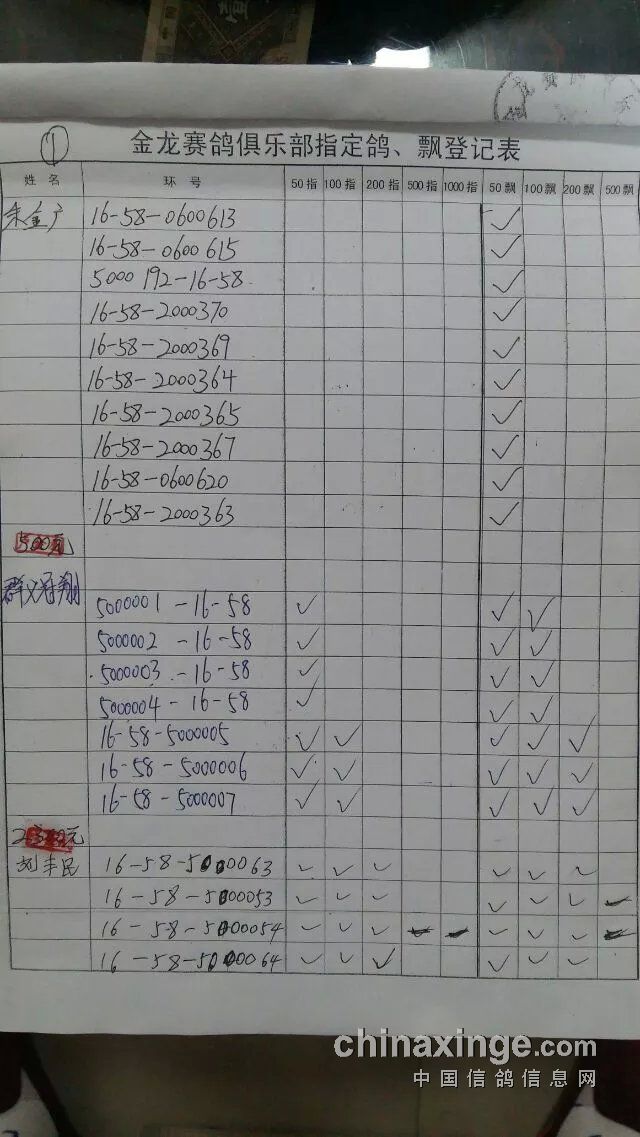 ①
金龙赛鸽俱乐部指定鸽、飘登记表
姓名 环号 50指 100指 200指 500指 1000指 50飘 100飘 200飘 500飘
朱金广 16-58-0600613 ✓
16-58-0600615 ✓
5000192-16-58 ✓
16-58-2000370 ✓
16-58-2000369 ✓
16-58-2000364 ✓
16-58-2000365 ✓
16-58-2000367 ✓
16-58-0600620 ✓
16-58-2000363 ✓
500元
群义 翔 5000001-16-58 ✓ ✓ ✓
5000002-16-58 ✓ ✓ ✓
5000003-16-58 ✓ ✓ ✓
5000004-16-58 ✓ ✓ ✓
16-58-5000005 ✓ ✓ ✓ ✓ ✓
16-58-5000006 ✓ ✓ ✓ ✓ ✓
16-58-5000007 ✓ ✓ ✓ ✓ ✓
元
刘丰民 16-58-5000063 ✓ ✓ ✓ ✓ ✓ ✓
16-58-5000053 ✓ ✓ ✓ ✓ ✓ ✓
16-58-5000054 ✓ ✓ ✓ ✓ ✓ ✓
16-58-5000064 ✓ ✓ ✓ ✓ ✓ ✓
chinaxinge.com
中国信鸽信息网